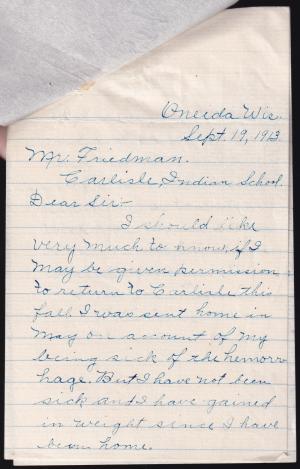 Oneida Wis.
Sept. 19, 1913
Mr. Friedman.
Carlisle, Indian School.
Dear Sir-
I should like
very much to know, if I
may be given permission
to return to Carlisle this
fall I was sent home in
May on account of my
being sick of the hemorr
hage. But I have not been
sick and I have gained
in weight since I have
been home.